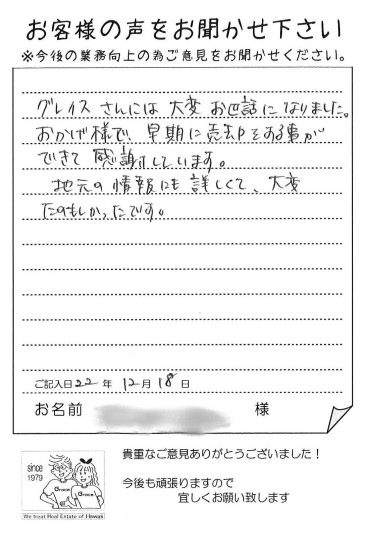 お客様の声をお聞かせ下さい
※今後の業務向上の為ご意見をお聞かせください。
グレイスさんには大変お世話になりました。
おかげ様で、早期に売却をする事が
できて感謝しています。
地元の情報にも詳しくて、大変
たのもしかったです。
ご記入日22年12月18日
お名前 様
since
1979
Grace
Grace
We treat Real Estate of Hawaii
貴重なご意見ありがとうございました！
今後も頑張りますので
宜しくお願い致します